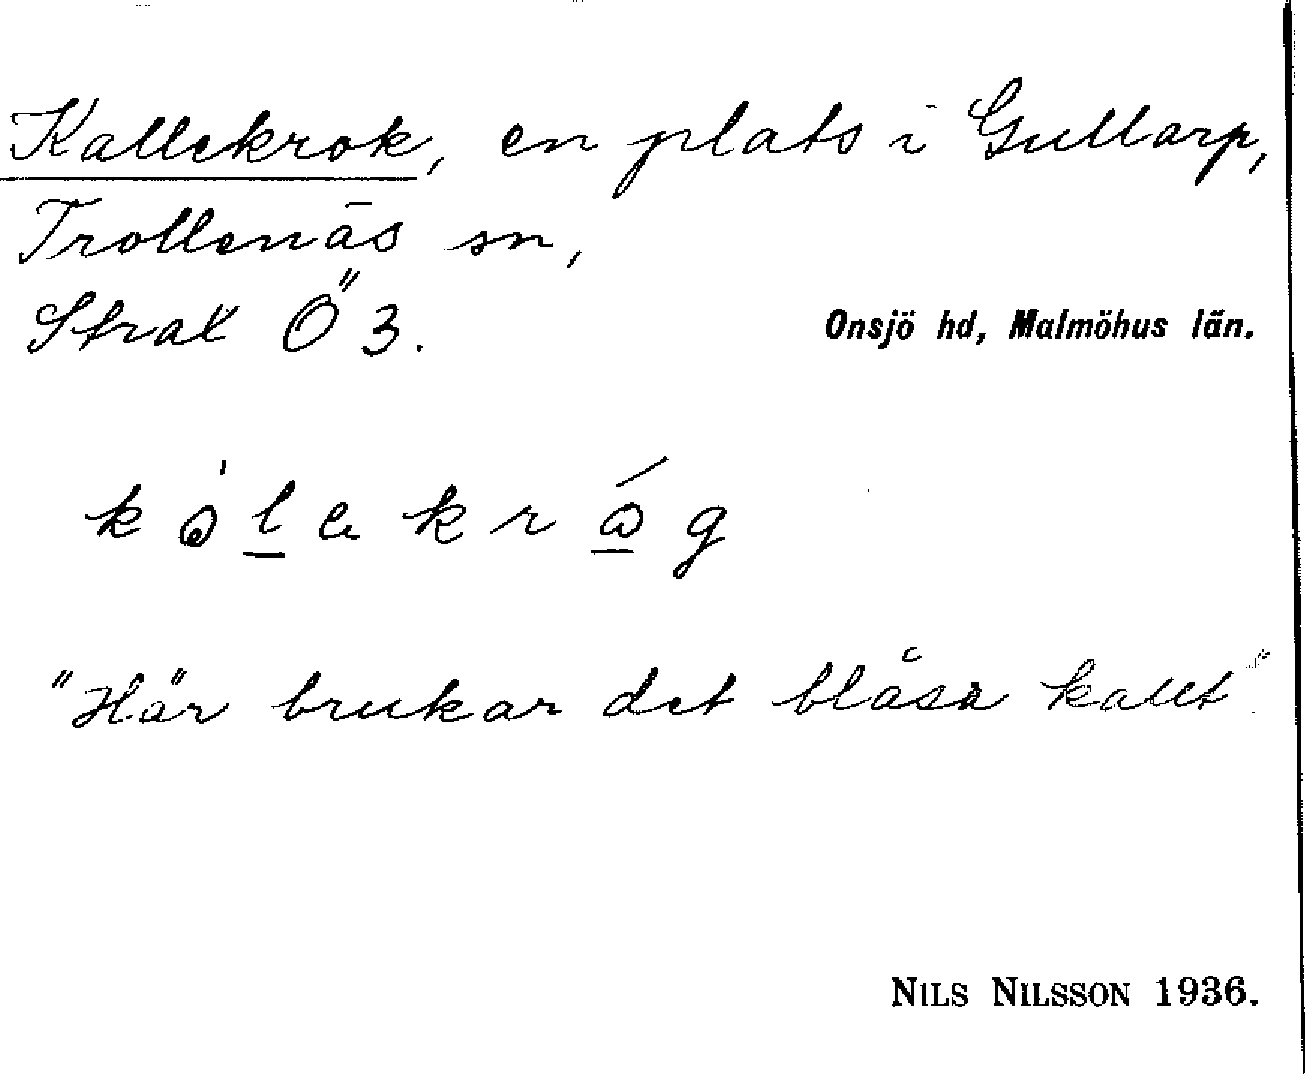 Kallekrok, en plats i Gullarp,
Trollenäs sn,
Strax Ö 3.
Onsjö hd, Malmöhus län.
"Här brukar det blåsa kallt".
NILS NILSSON 1936.